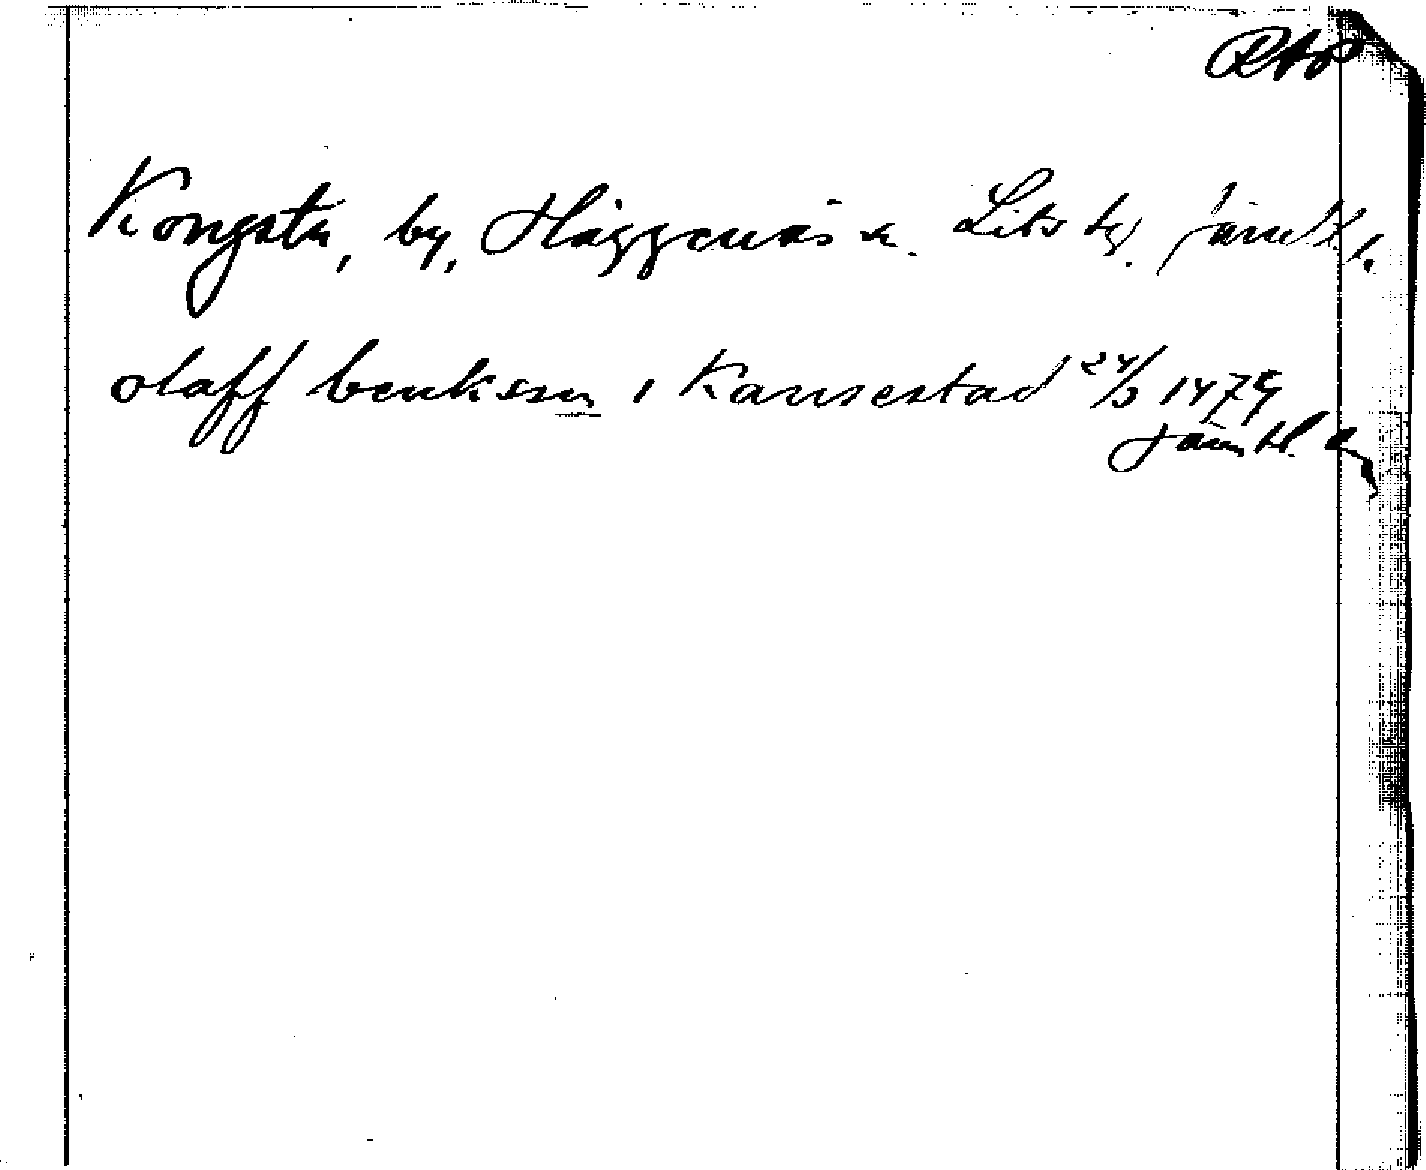 RAP
Kongsta, by, Häggenås sn. Lits tg. Jämtl. l.
olaff benksson i Kansestad 24/3 1479
Jämtl.